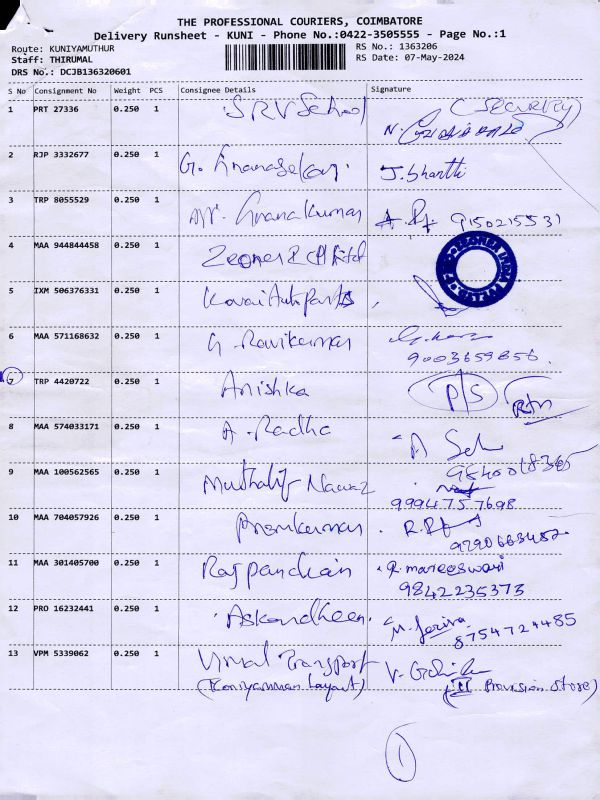 THE PROFESSIONAL COURIERS, COIMBATORE
Delivery Runsheet - KUNI - Phone No.:0422-3505555 - Page No.:1
Route: KUNIYAMUTHUR
Staff: THIRUMAL
DRS No.: DCJB136320601
RS No.: 1363206
RS Date: 07-May-2024
S No Consignment No Weight PCS Consignee Details Signature
1 PRT 27336 0.250 1 SRV School (SECURITY)
N.
2 RJP 3332677 0.250 1 G. Gnanasekar. J. bharathi
3 TRP 8055529 0.250 1 Mr. Gnanakumar 9150215531
4 MAA 944844458 0.250 1
5 IXM 506376331 0.250 1 Kovai Auto Parts
6 MAA 571168632 0.250 1 G. Ravikumar
9003659856.
7 TRP 4420722 0.250 1 Anishka P/S Rtn
8 MAA 574033171 0.250 1 A. Radha
9840018365
9 MAA 100562565 0.250 1 Nawaz
9994757698
10 MAA 704057926 0.250 1 Premkumar
11 MAA 301405700 0.250 1 Rajpandian R. mareeswari
9842235373
12 PRO 16232441 0.250 1 8754724485
13 VPM 5339062 0.250 1 Vimal Transport
(Koniyamman Layout) Provision Store)
1